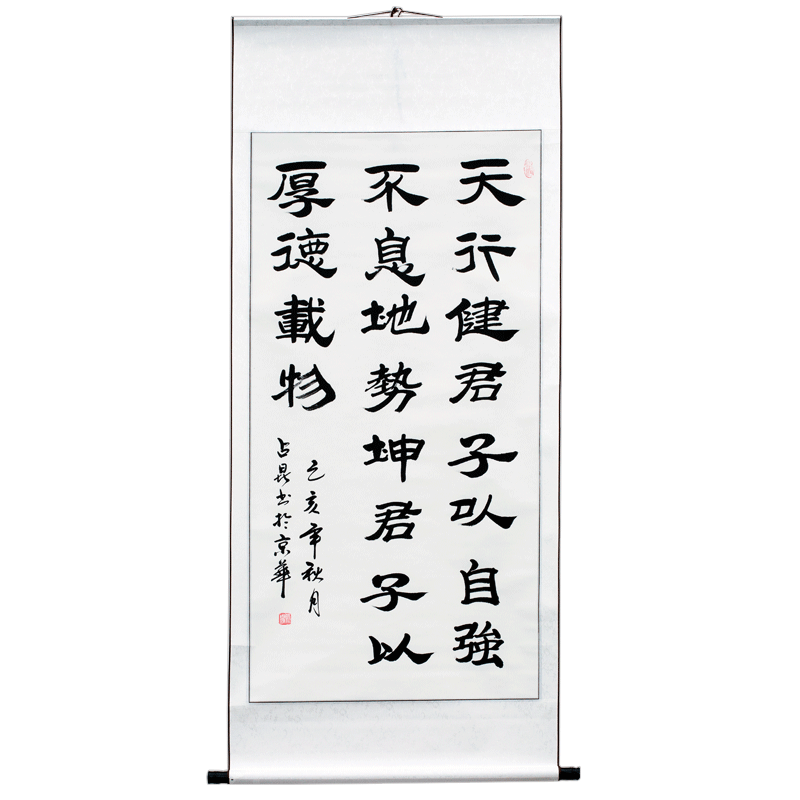 天行健君子以自強
不息地勢坤君子以
厚德載物
己亥年秋月
占昆书於京華